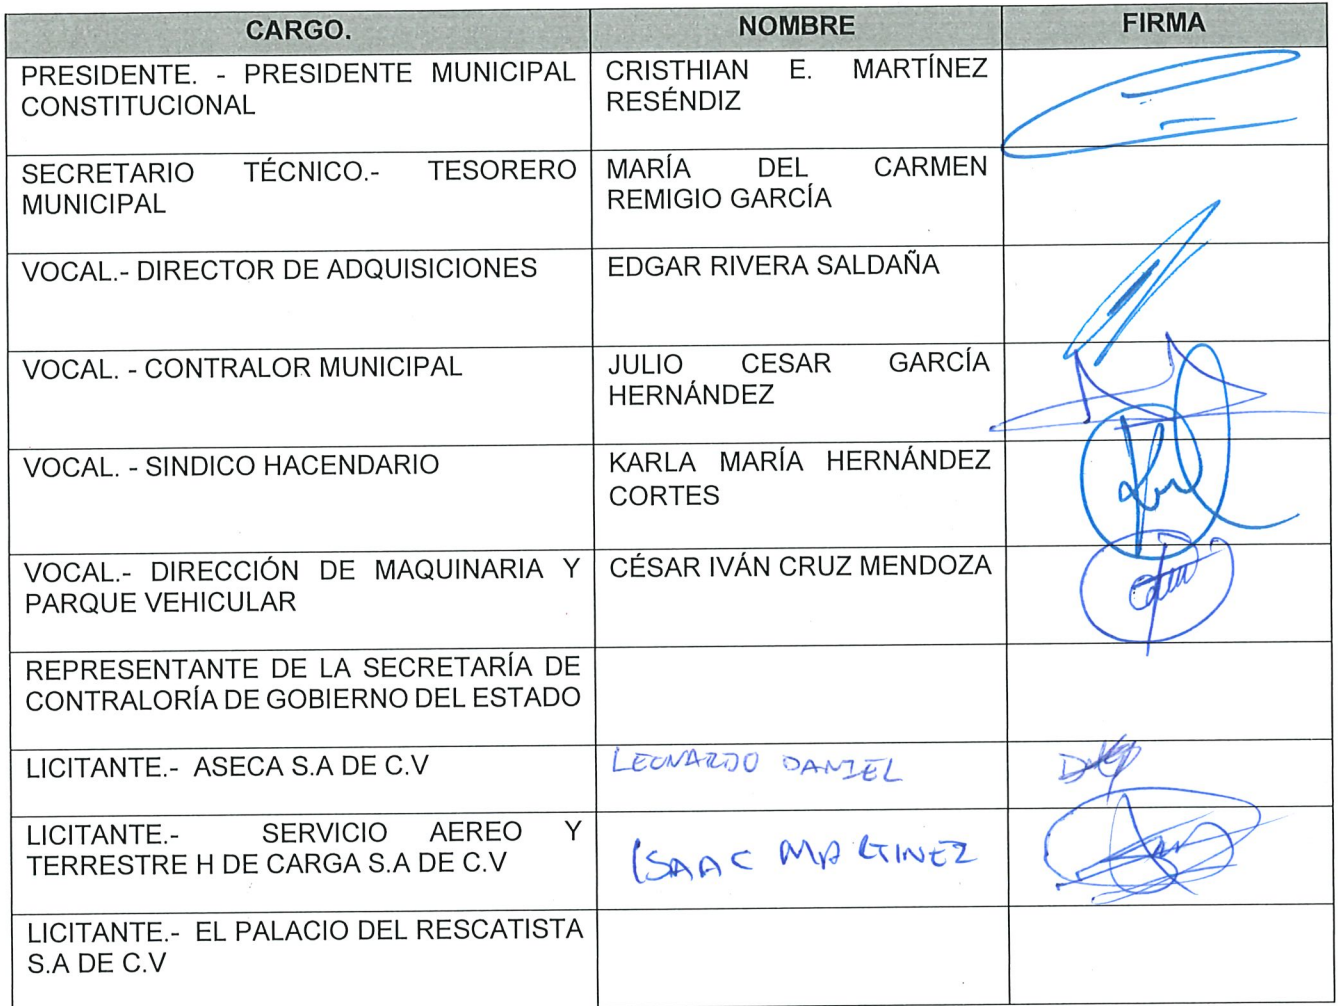 CARGO. NOMBRE FIRMA
PRESIDENTE. - PRESIDENTE MUNICIPAL
CONSTITUCIONAL
CRISTHIAN E. MARTÍNEZ
RESÉNDIZ
SECRETARIO TÉCNICO.- TESORERO
MUNICIPAL
MARÍA DEL CARMEN
REMIGIO GARCÍA
VOCAL.- DIRECTOR DE ADQUISICIONES
EDGAR RIVERA SALDAÑA
VOCAL. - CONTRALOR MUNICIPAL
JULIO CESAR GARCÍA
HERNÁNDEZ
VOCAL. - SINDICO HACENDARIO
KARLA MARÍA HERNÁNDEZ
CORTES
VOCAL.- DIRECCIÓN DE MAQUINARIA Y
PARQUE VEHICULAR
CÉSAR IVÁN CRUZ MENDOZA
REPRESENTANTE DE LA SECRETARÍA DE
CONTRALORÍA DE GOBIERNO DEL ESTADO
LICITANTE.- ASECA S.A DE C.V
LEONARDO DANIEL
LICITANTE.- SERVICIO AEREO Y
TERRESTRE H DE CARGA S.A DE C.V
ISAAC MARTINEZ
LICITANTE.- EL PALACIO DEL RESCATISTA
S.A DE C.V